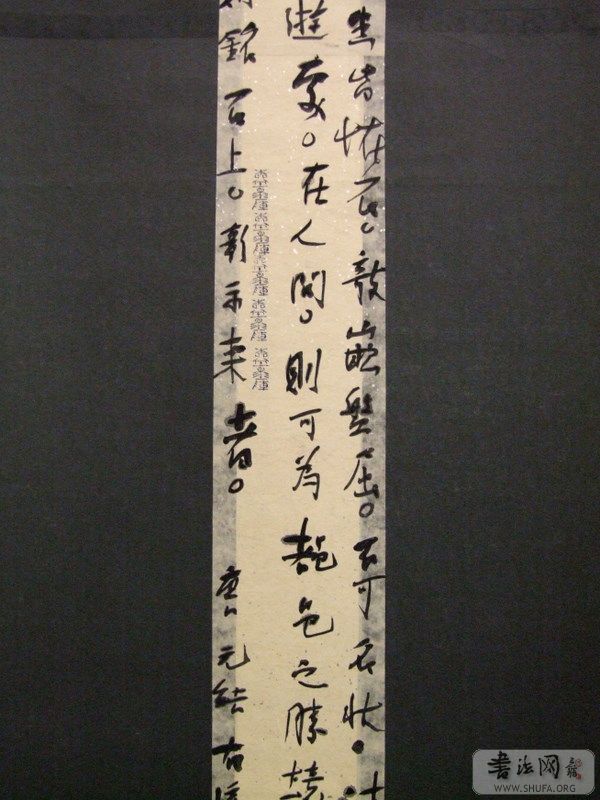 皆怪石。欹嵌盤屈。不可名狀。
遊處。在人間。則可為都邑之勝境
銘石上。彰示來者。 唐 元結 右溪
書法网
WWW.SHUFA.ORG